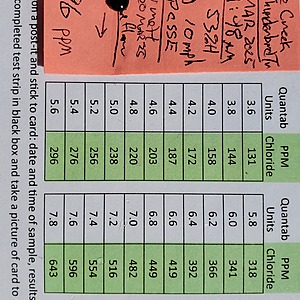 Creek
MAR 2025
10 mph
PPM
Quantab PPM Quantab PPM
Units Chloride Units Chloride
3.6 131 5.8 318
3.8 144 6.0 341
4.0 158 6.2 366
4.2 172 6.4 392
4.4 187 6.6 419
4.6 203 6.8 449
4.8 220 7.0 482
5.0 238 7.2 516
5.2 256 7.4 554
5.4 276 7.6 596
5.6 296 7.8 643
on a post-it and stick to card: date and time of sample, results
completed test strip in black box and take a picture of card to